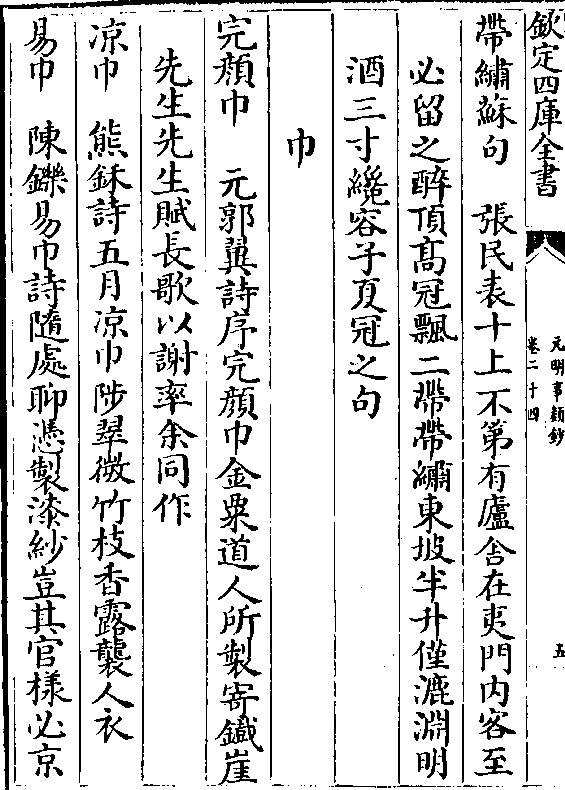 欽定四庫全書
元明事類鈔
卷二十四
五
帶繡蘇句　張民表十上不第有廬舍在夷門内客至
必留之醉頂髙冠飄二帶帶繡東坡半升僅漉淵明
酒三寸纔容子夏冠之句
巾
完顔巾　元郭翼詩序完顔巾金粟道人所製寄鐵崖
先生先生賦長歌以謝率余同作
凉巾　熊鉌詩五月凉巾陟翠微竹枝香露襲人衣
易巾　陳鑠易巾詩隨處聊憑製漆紗豈其官樣必京